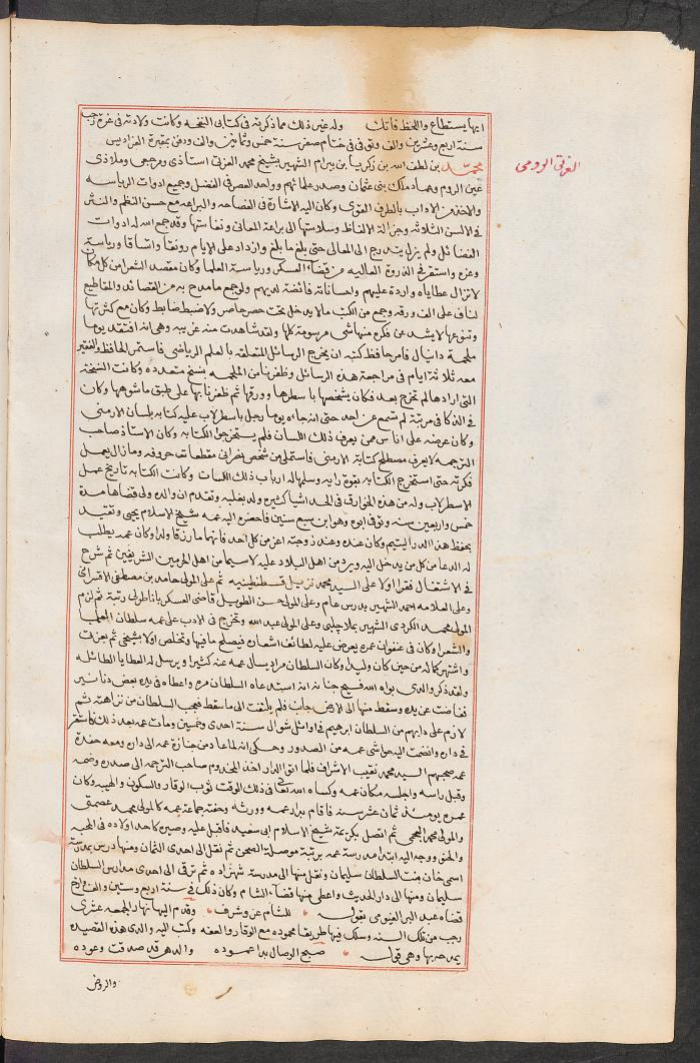 ايها يستطاع واللحظ فاتك وله غير ذلك مما ذكرته في كتابي النفحه وكانت ولادته في غرة رجب
سنة اربع وعشرين والف وتوفي في ختام صفر سنة خمس وثمانين والف ودفن بمقبرة الفراديس
محمد بن لطف الله بن زكريا بن بيرام الشهير بشيخ محمد العزتي استاذي ومرجعي وملاذي
العزتي الرومي
عين الروم وعماد ملك بني عثمان وصدر علمائهم وواحد العصر في الفضل وجميع ادوات الرياسه
والاخذ من الاداب بالطرف القوي وكان اليه الاشارة في الفصاحه والبراعه مع حسن النظم والنثر
في الالسن الثلاثه وجزالة الالفاظ وسلاستها الى براعة المعاني ونفاستها وقد جمع الله له ادوات
الفضائل ولم يزل يتدرج الى المعالي حتى بلغ ما بلغ وازداد على الايام رونقا واتساقا ورياسة
وعزه واستقر في الذروة العاليه من قضاء العسكر ورياسة العلما وكان مقصد الشعرا من كل مكان
لاتزال عطاياه واردة عليهم واحساناته فائضة لديهم ولو جمع ما مدح به من القصائد والمقاطيع
لناف على الف ورقه وجمع من الكتب مالا يدخل تحت حصر حاصر ولا ضبط ضابط وكان مع كثرتها
وتنوعها لا يشذ عن فكره منها شي مرسومة كلها ولقد شاهدت منه غريبه وهي انه افتقد يوما
ملحمة دانيال فامر حافظ كتبه ان يخرج الرسائل المتعلقه بالعلم الرياضي فاستمر الحافظ والفقير
معه ثلاثة ايام في مراجعة هذه الرسائل وظفرنا من الملحمه بنسخ متعدده وكانت النسخة
التي ارادها لم تخرج بعد فكان يشخصها باسطرها وورقها ثم ظفرنا بها على طبق ما شوهها وكان
في الذكا في مرتبة لم تسمع عن احد حتى انه جاءه يوما رجل باسطرلاب عليه كتابه بلسان الارمني
وكان عرضه على اناس ممن يعرف ذلك اللسان فلم يستخرجوا الكتابه وكان الاستاذ صاحب
الترجمه لا يعرف مصطلح كتابة الارمني فاستملى من شخص نصراني مقطعات حروفه وما زال يعمل
فكرته حتى استخرج الكتابه بقوة رايه وسلمها له ارباب ذلك اللسان وكانت الكتابه تاريخ عمل
الاسطرلاب وله من هذه الخوارق في الحد اشيا كثيره ولد بغلبه وتقدم ان والده ولي قضاها مدة
خمس واربعين سنه وتوفي ابوه وهو ابن سبع سنين فاحضره اليه عمه شيخ الاسلام يحيى وتقيد
بحفظ هذا الدر اليتيم وكان عنده وعند زوجته اعز من كل احد فانهما ما رزقا ولدا وكان عمه يطلب
له الدعا من كل من يدخل اليه ويرد من اهل البلاد عليه لاسيما من اهل الحرمين الشريفين ثم شرع
في الاشتغال فقرا اولا على السيد محمد نزيل قسطنطينيه ثم على المولى حامد بن مصطفى الاقسراي
وعلى العلامه احمد الشهير بدرس عام وعلى المولى حسن الطويل قاضي العسكر باناطولى رتبة ثم لزم
المولى محمد الكردي الشهير بملا چلبي وعلى المولى عبد الله وتخرج في الادب على عمه سلطان العلما
والشعرا وكان في عنفوان عمره يعرض عليه لطائف اشعاره فيصلح مافيها وتخلص اولا بشيخي ثم بعزت
واشتهر كماله من حين كان وليدا وكان السلطان مراد يسال عمه عنه كثيرا ويرسل له العطايا الطائله
ولقد ذكر والدي بواه الله فسيح جنانه انه استدعاه السلطان مره واعطاه في يده بعض دنانير
ففاضت عن يده وسقط منها الى الارض جانب فلم يلتفت الى ما سقط فعجب السلطان من نزاهته ثم
لازم على دابهم من السلطان ابرهيم في اوائل شوال سنة احدى وخمسين ومات عمه بعد ذلك فاستقر
في داره وانضمت اليه حواشي عمه من الصدور وحكى انه لما عاد من جنازة عمه الى داره ومعه حفدة
عمه صحبهم السيد محمد نقيب الاشراف فلما اتوا الدار اخذ المخدوم صاحب الترجمه الى صدره وضمه
وقبل راسه واجلسه مكان عمه وكساه الله تعالى في ذلك الوقت ثوب الوقار والسكون والهيبه وكان
عمره يومئذ ثمان عشر سنه فاقام بدار عمه وورثه وحفته جماعة عمه كالمولى محمد عصمتي
والمولى محمد العجمي ثم اتصل بكريمة شيخ الاسلام ابي سعيد فاقبل عليه وصيره كاحد اولاده في المحبه
والحنو ووجه اليه ابتدا مدرسة عمه برتبة موصلة الصحن ثم نقل الى احدى الثمان ومنها درس بمدرسة
اسمي خان بنت السلطان سليمان ونقل منها الى مدرسة شهزاده ثم ترقى الى احدى مدارس السلطان
سليمان ومنها الى دار الحديث واعطي منها قضاء الشام وكان ذلك في سنة اربع وستين والف وارخ
قضاه عبد البر الفيومي بقوله للشام عز وشرف وقدم اليها نهار الجمعه عشري
رجب من تلك السنه وسلك فيها طريقا محموده مع الوقار والعفه وكتب اليه والدي هذه القصيده
يمدحه بها وهي قوله صبح الوصال بدا عموده والدهر قد صدقت وعوده
والروض